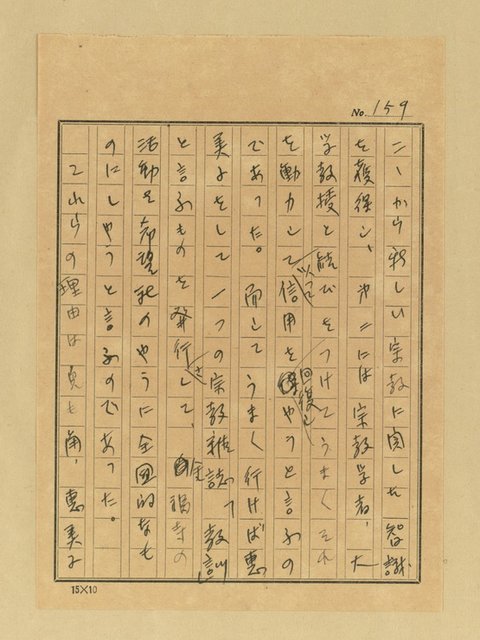 No. 159
ニヽから新しい宗教に関した智識
を獲得し、第二には宗教学者、大
学教授と結びをつけてうまくそれ
を動力して以て信用を回復しやうと言ふの
であつた。而してうまく行けば惠
美子をして一つの宗教雑誌「教訓」
と言ふものを発行させて、金福寺の
活動を希望社のやうに全国的なも
のにしやうと言ふのであつた。
これらの理由は兎も角、惠美子
15×10